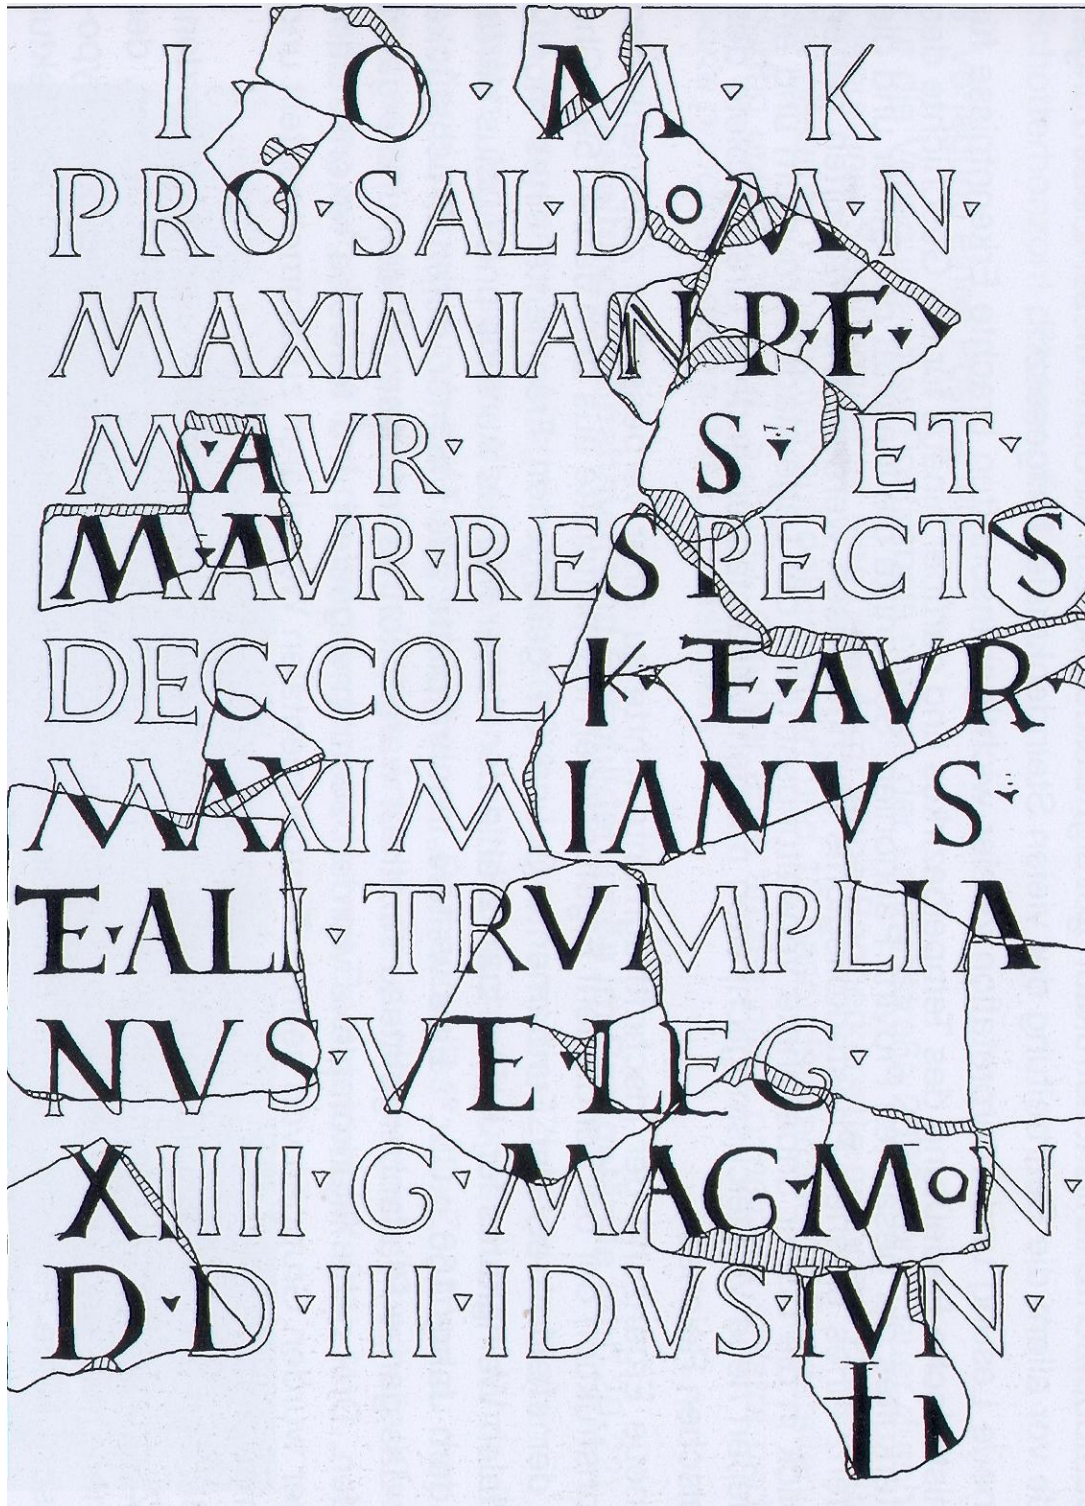 I O · M · K
PRO · SAL · DOM · N ·
MAXIMIANI P · F ·
M · AVR · S · ET ·
M · AVR · RESPECTS
DEC · COL · K · E · AVR ·
MAXIMIANVS ·
E · ALI · TRVI MPLIA
NVS · VE · LEG ·
XIIIII · G · MMAG · MON ·
D · D · III · IDVS · IVN ·